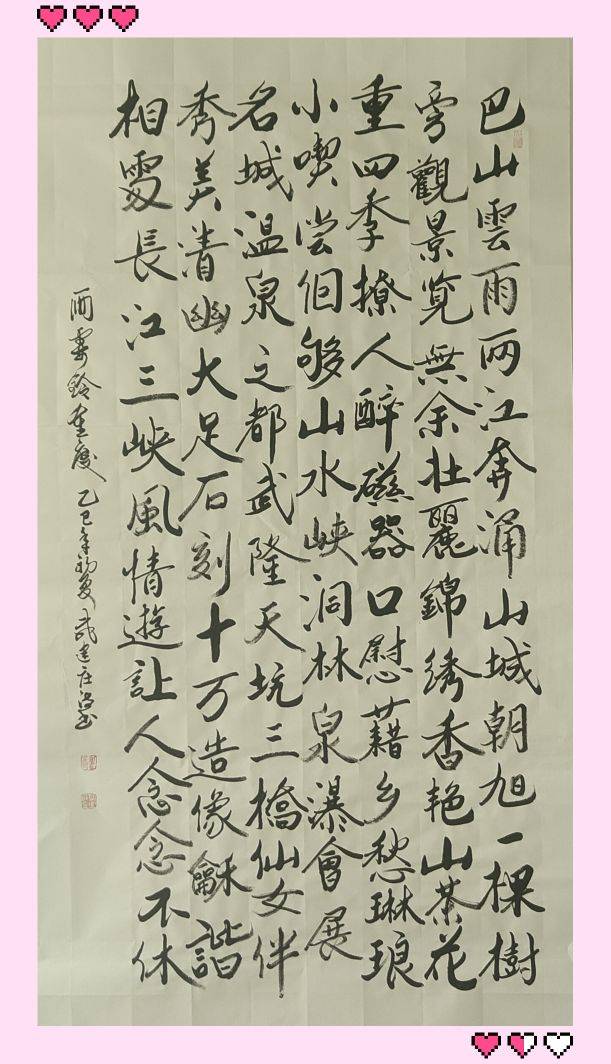 巴山雲雨两江奔涌山城朝旭一棵樹
旁觀景览無余壮麗錦绣香艳山茶花
重四季撩人醉磁器口慰藉乡愁琳琅
小喫尝佀够山水峡洞林泉瀑會展
名城温泉之都武隆天坑三橋仙女伴
秀美清幽大足石刻十万造像龢谐
相處長江三峡風情遊让人念念不休
雨霖鈴重慶 乙巳年初夏 武建庄书